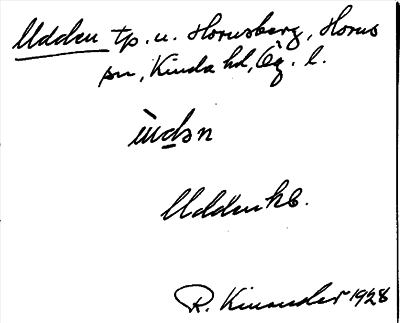 Udden tp. u. Hornsberg, Horns
sn, Kinda hd, Ög. l.
ùdən
Udden kb.
R. Kinander 1928